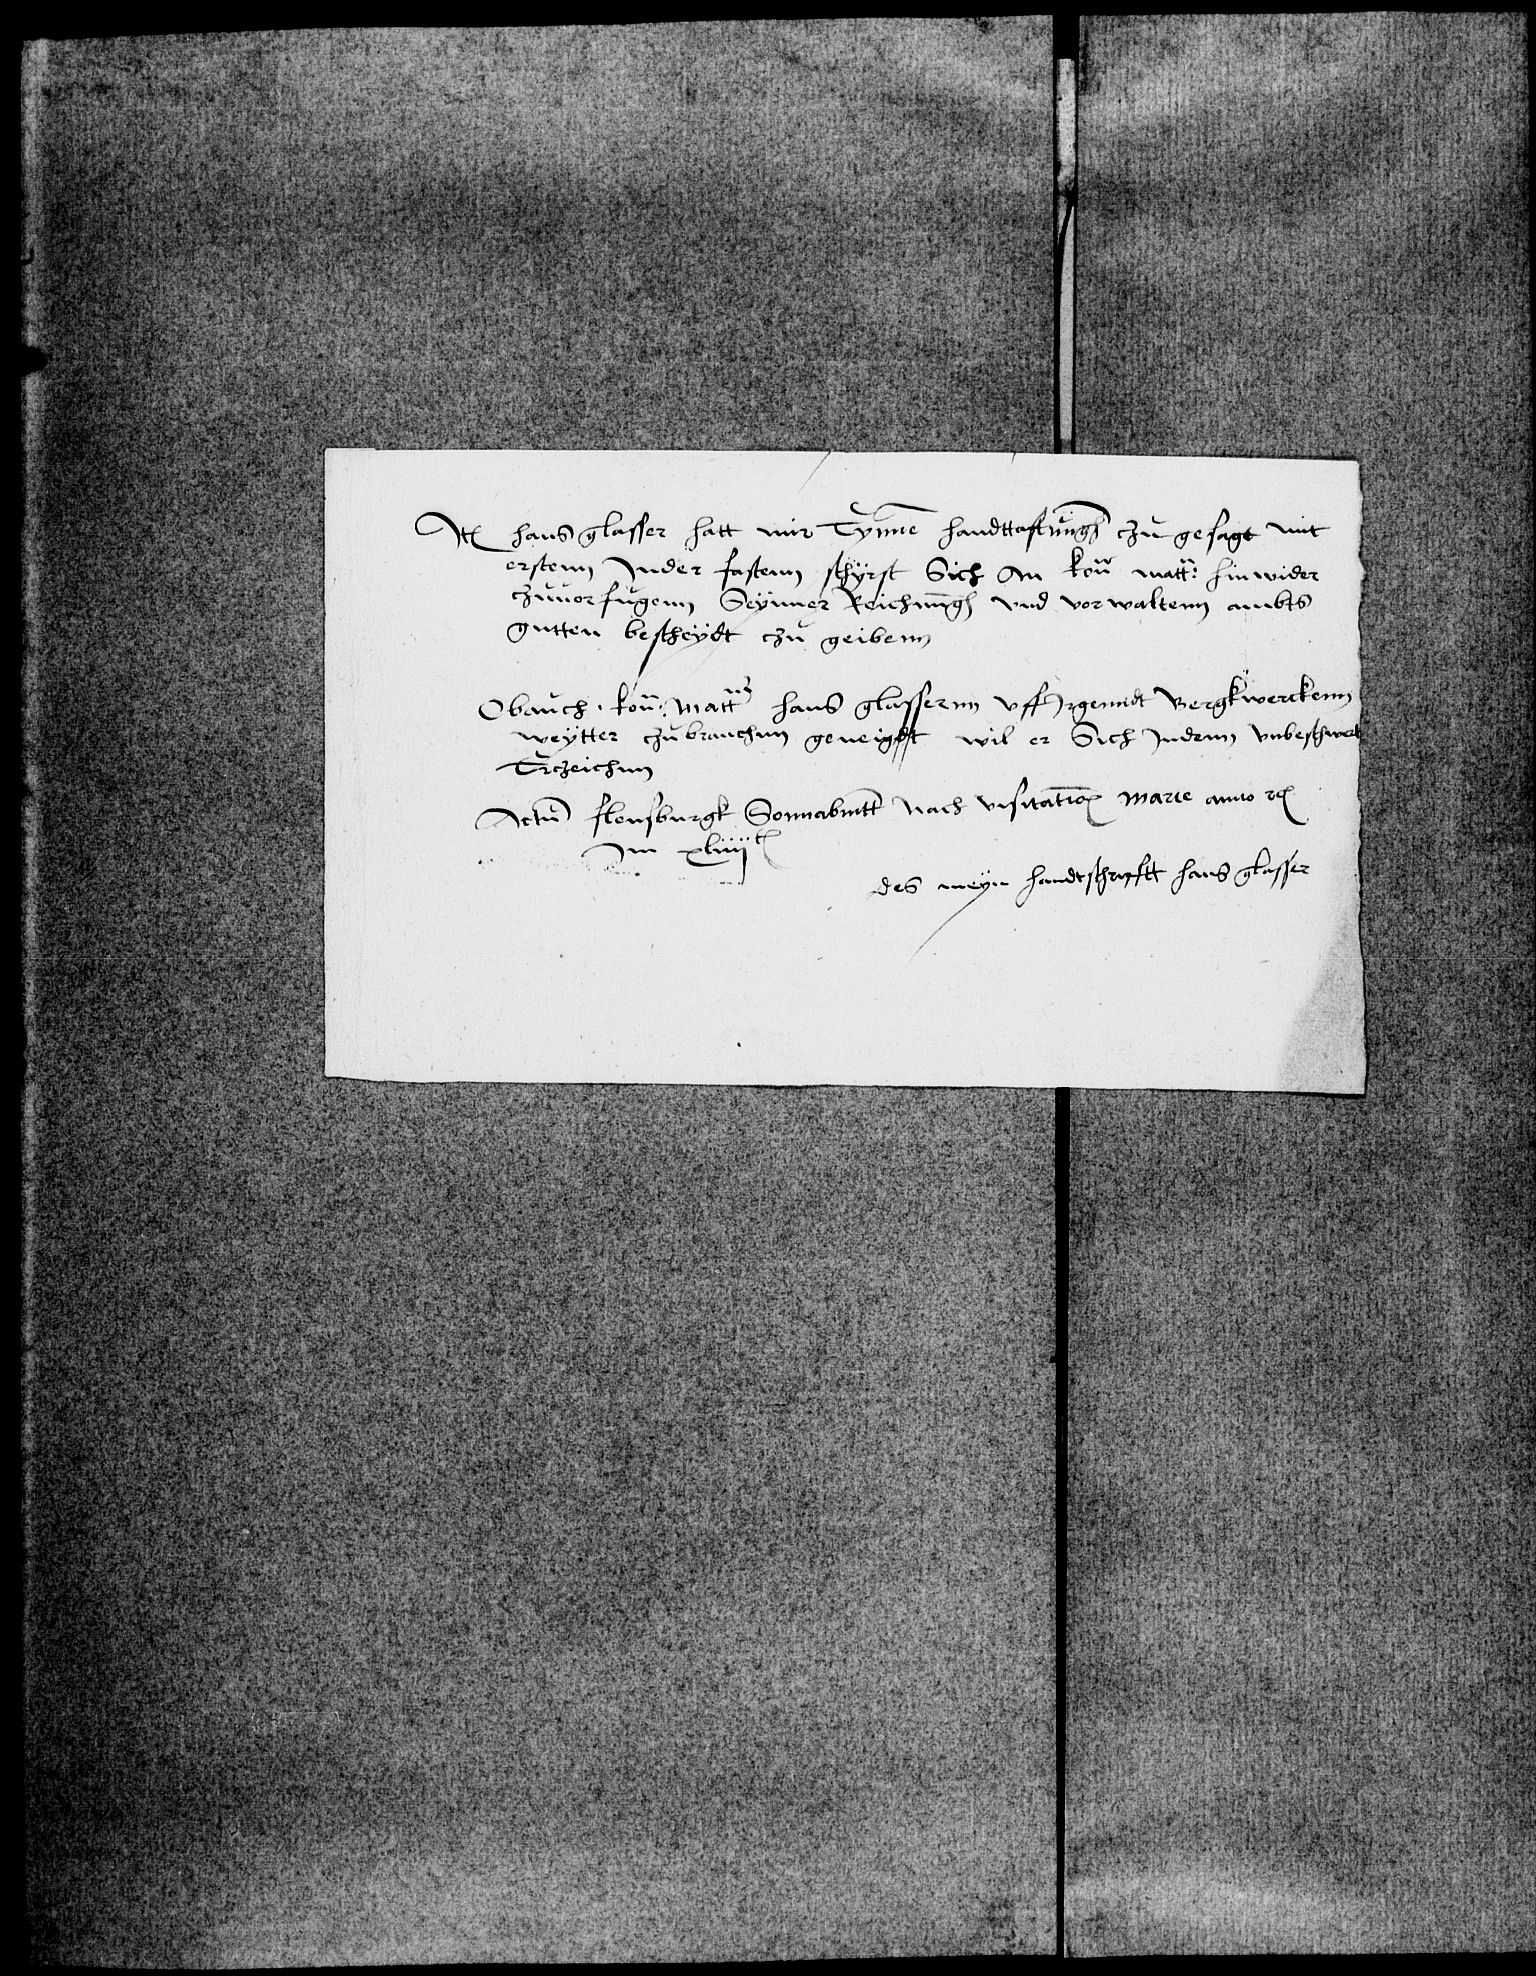 Itē hans glasser hatt mir Eyme handttastungh czu gesagt mit
erstenn Jnder fastenn schyrst Sich An kon matt: hinwider
czuuorfugenn Seynner Reichnungh vnd vorwaltenn ambts
gutten bescheydt czu geibenn
Obauch kon: Matt hans glassernn vff Jrgenndt Bergkwerckenn
weytter czubrauchnn geneigdt wil er Sich Jndenn vnbeschwert
Erczeichnn
Actū flensburgk Sonnabintt Nach visitation Marie anno
Jm xliiij
des meyn handtschryfft hans glasser